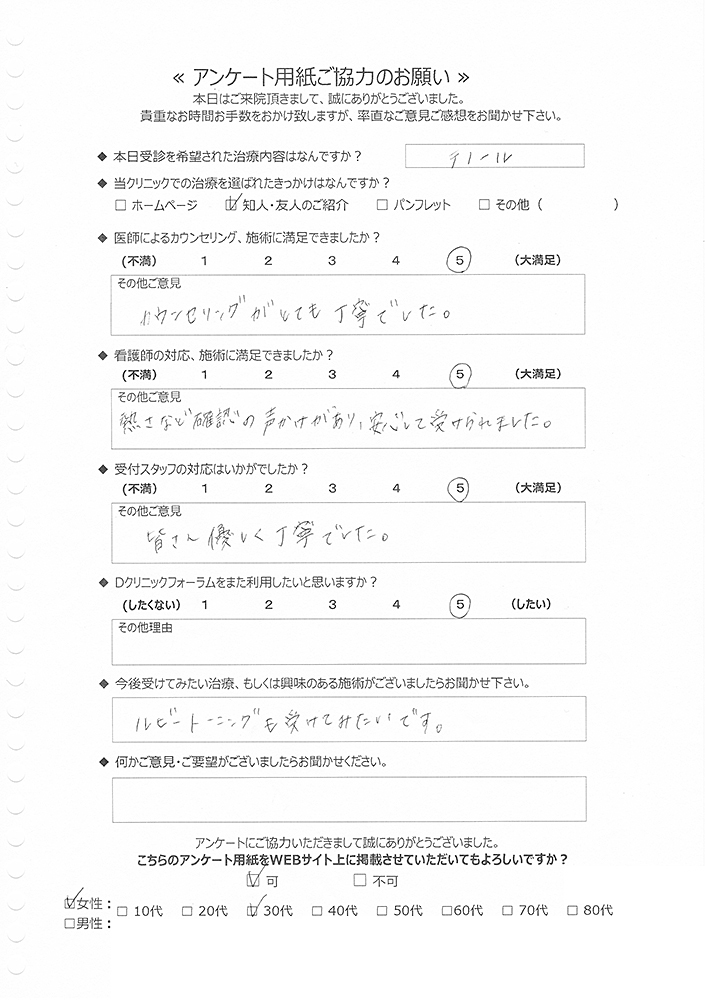 ≪ アンケート用紙ご協力のお願い ≫
本日はご来院頂きまして、誠にありがとうございました。
貴重なお時間お手数をおかけ致しますが、率直なご意見ご感想をお聞かせ下さい。
◆ 本日受診を希望された治療内容はなんですか？ テノール
◆ 当クリニックでの治療を選ばれたきっかけはなんですか？
□ ホームページ ☑ 知人・友人のご紹介 □ パンフレット □ その他（ ）
◆ 医師によるカウンセリング、施術に満足できましたか？
(不満) 1 2 3 4 ⑤ (大満足)
その他ご意見
カウンセリングがとても丁寧でした。
◆ 看護師の対応、施術に満足できましたか？
(不満) 1 2 3 4 ⑤ (大満足)
その他ご意見
熱さなど確認の声かけがあり、安心して受けられました。
◆ 受付スタッフの対応はいかがでしたか？
(不満) 1 2 3 4 ⑤ (大満足)
その他ご意見
皆さん優しく丁寧でした。
◆ Dクリニックフォーラムをまた利用したいと思いますか？
(したくない) 1 2 3 4 ⑤ (したい)
その他理由
◆ 今後受けてみたい治療、もしくは興味のある施術がございましたらお聞かせ下さい。
ルビートーニングも受けてみたいです。
◆ 何かご意見・ご要望がございましたらお聞かせください。
アンケートにご協力いただきまして誠にありがとうございました。
こちらのアンケート用紙をWEBサイト上に掲載させていただいてもよろしいですか？
☑ 可 □ 不可
☑女性： □ 10代 □ 20代 ☑ 30代 □ 40代 □ 50代 □60代 □ 70代 □ 80代
□男性：